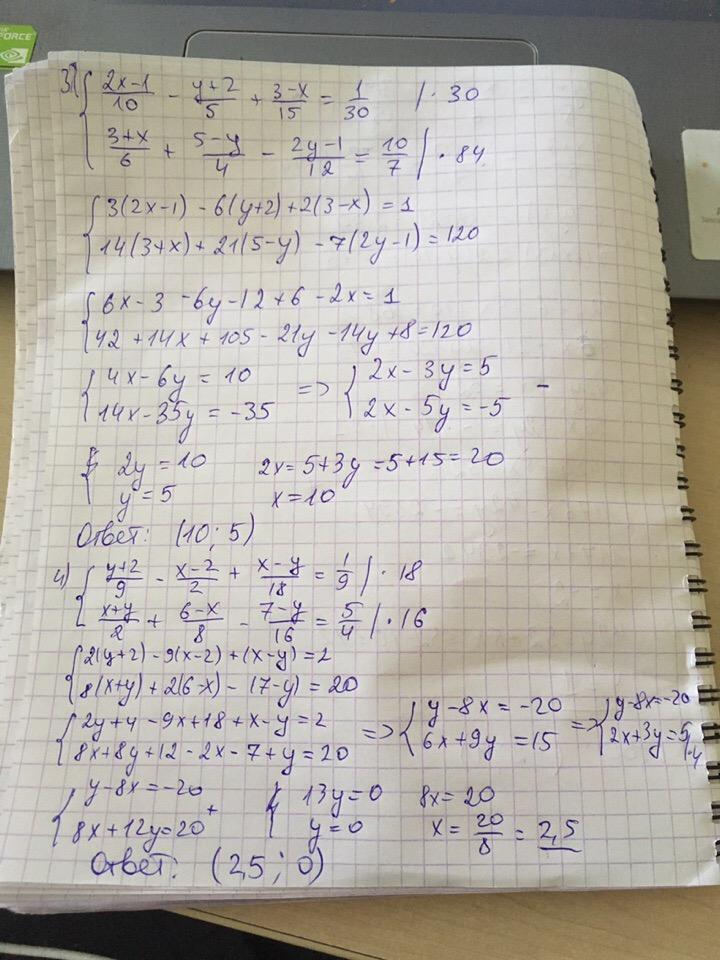 FORCE
3) { (2x-1)/10 - (y+2)/5 + (3-x)/15 = 1/30 | · 30
(3+x)/6 + (5-y)/4 - (2y-1)/12 = 10/7 | · 84
{ 3(2x-1) - 6(y+2) + 2(3-x) = 1
14(3+x) + 21(5-y) - 7(2y-1) = 120
{ 6x - 3 - 6y - 12 + 6 - 2x = 1
42 + 14x + 105 - 21y - 14y + 8 = 120
{ 4x - 6y = 10 => { 2x - 3y = 5 -
14x - 35y = -35 2x - 5y = -5
{ 2y = 10 2x = 5 + 3y = 5 + 15 = 20
y = 5 x = 10
Ответ: (10; 5)
4) { (y+2)/9 - (x-2)/2 + (x-y)/18 = 1/9 | · 18
(x+y)/2 + (6-x)/8 - (7-y)/16 = 5/4 | · 16
{ 2(y+2) - 9(x-2) + (x-y) = 2
8(x+y) + 2(6-x) - (7-y) = 20
{ 2y + 4 - 9x + 18 + x - y = 2 => { y - 8x = -20 => { y - 8x = -20
8x + 8y + 12 - 2x - 7 + y = 20 6x + 9y = 15 2x + 3y = 5 | · 4
{ y - 8x = -20 + { 13y = 0 8x = 20
8x + 12y = 20 y = 0 x = 20/8 = 2,5
Ответ: (2,5; 0)